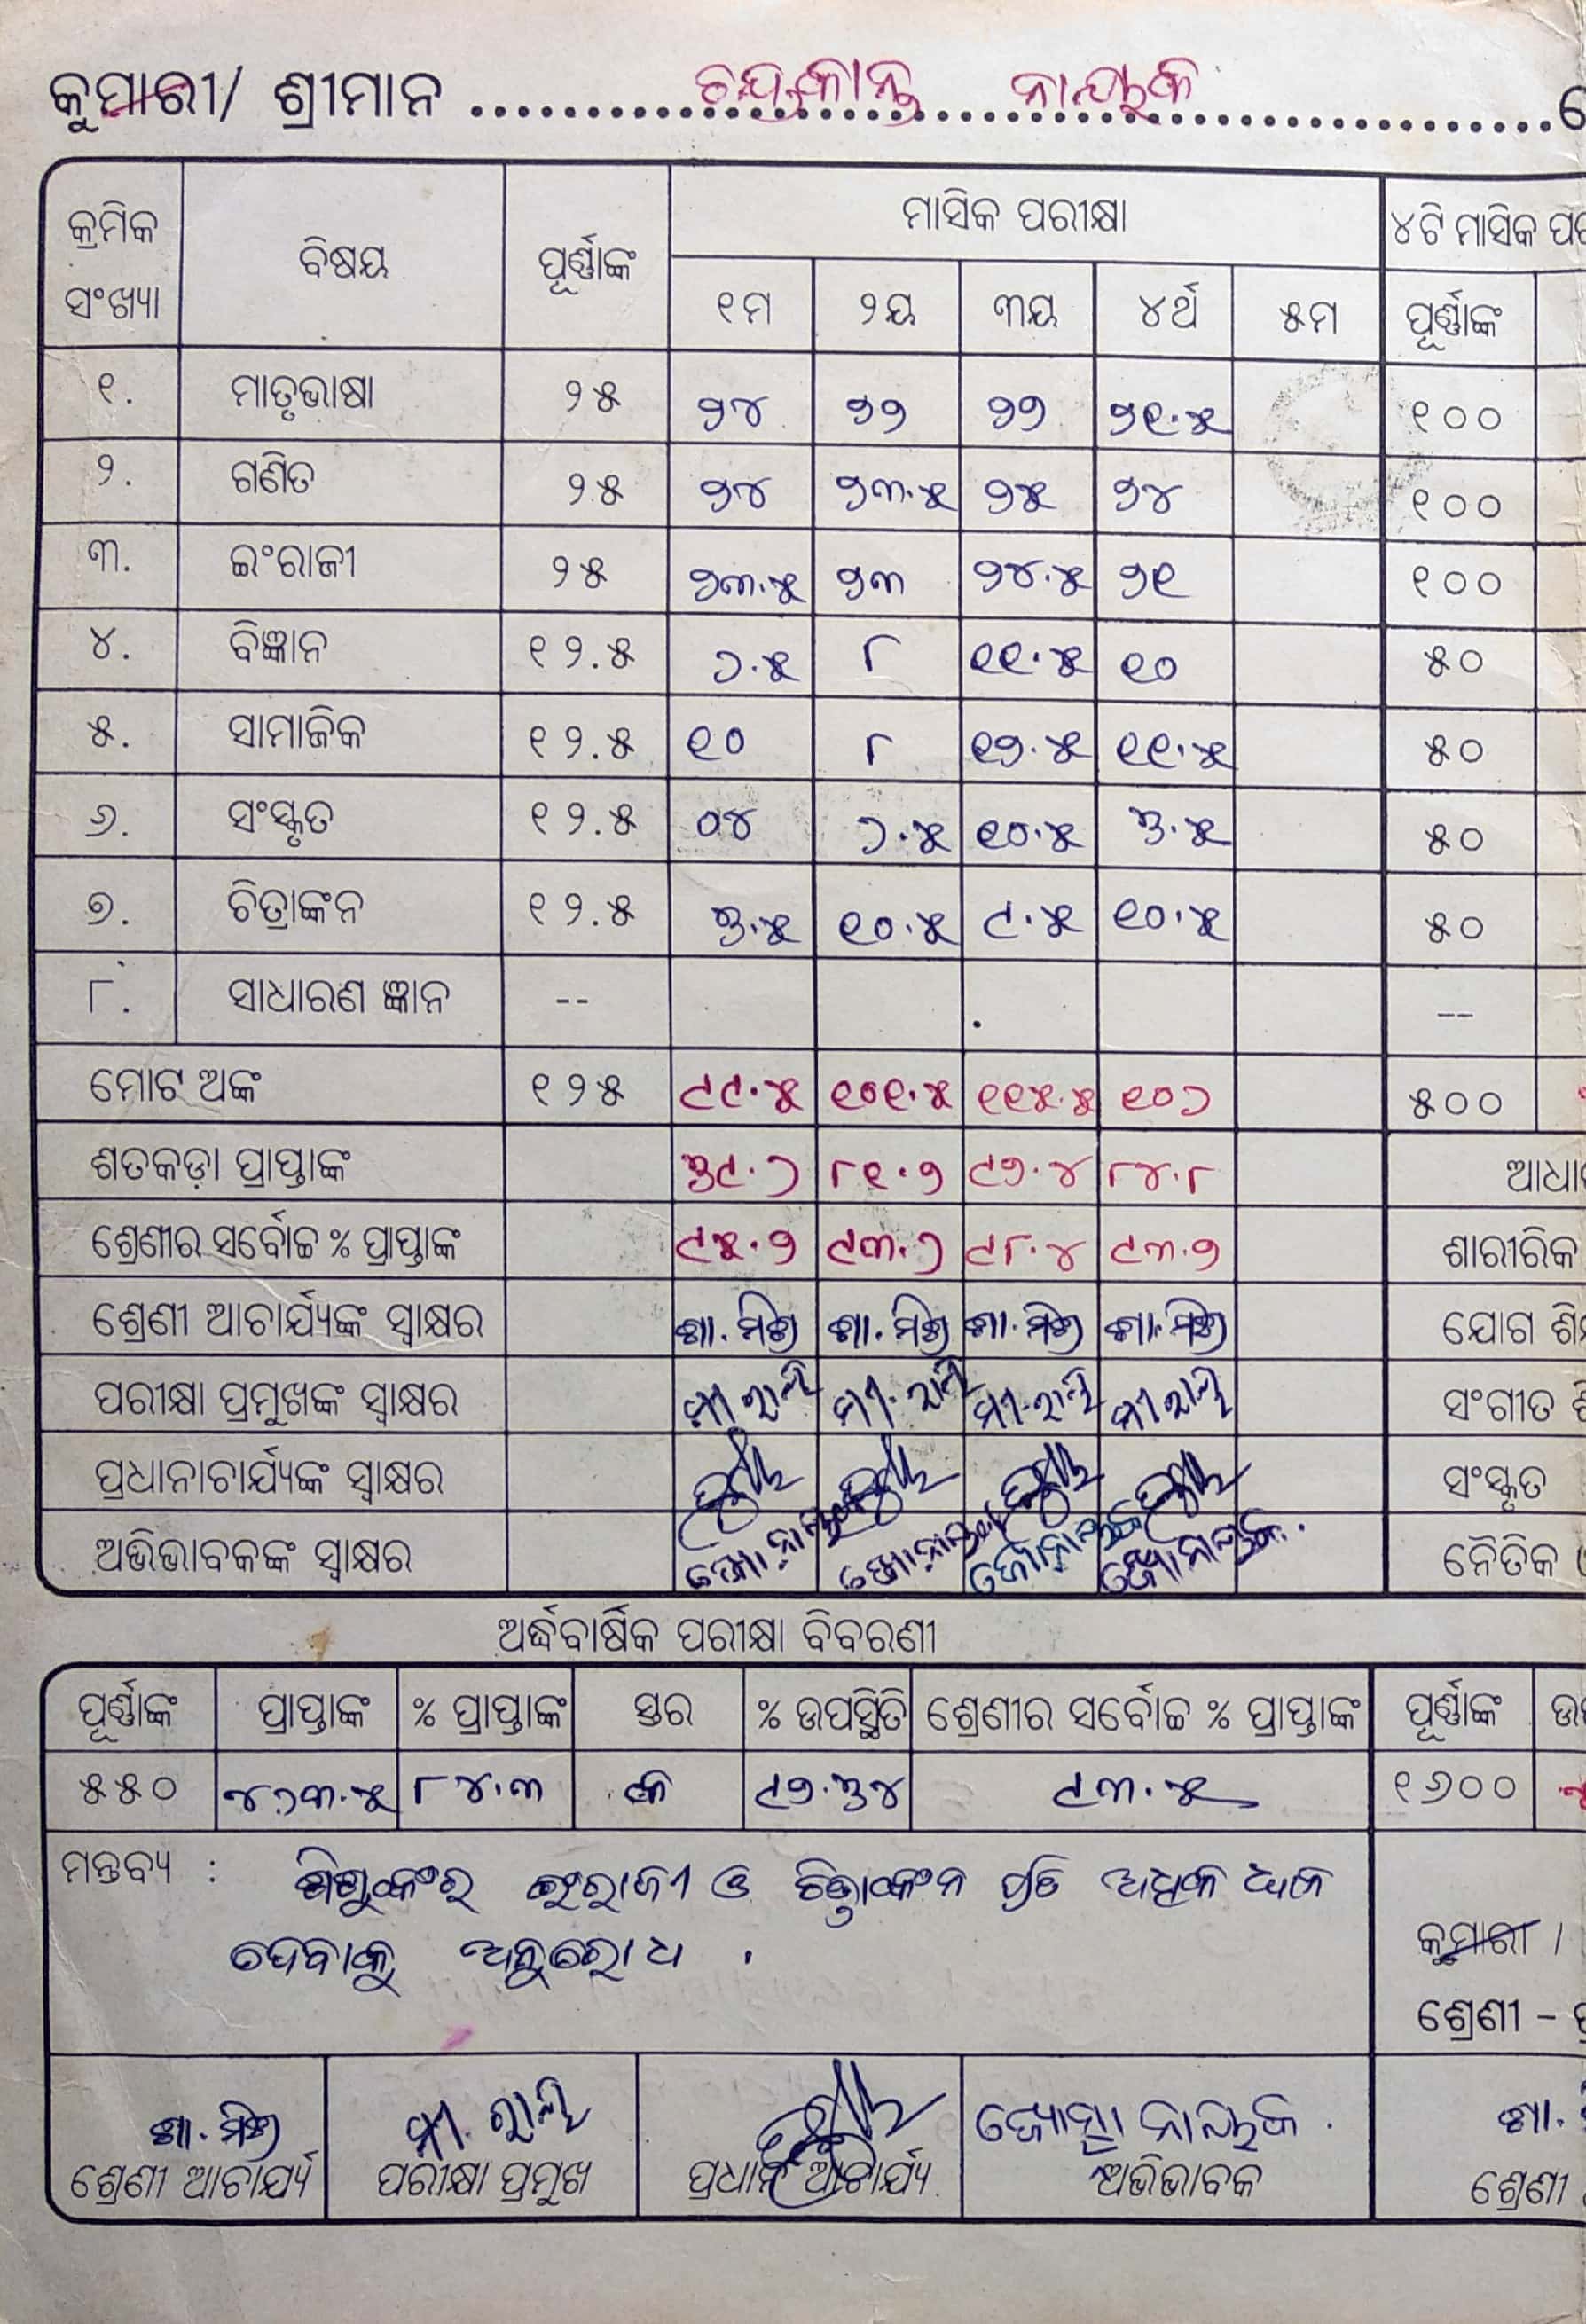 କୁମାରୀ/ ଶ୍ରୀମାନ ଚନ୍ଦ୍ରକାନ୍ତ ନାୟକ
କ୍ରମିକ ସଂଖ୍ୟା ବିଷୟ ପୂର୍ଣ୍ଣାଙ୍କ ମାସିକ ପରୀକ୍ଷା ୪ଟି ମାସିକ
୧ମ ୨ୟ ୩ୟ ୪ର୍ଥ ୫ମ ପୂର୍ଣ୍ଣାଙ୍କ
୧. ମାତୃଭାଷା ୨୫ ୨୪ ୨୨ ୨୨ ୨୧.୫ ୧୦୦
୨. ଗଣିତ ୨୫ ୨୪ ୨୩.୫ ୨୫ ୨୪ ୧୦୦
୩. ଇଂରାଜୀ ୨୫ ୨୩.୫ ୨୩ ୨୪.୫ ୨୧ ୧୦୦
୪. ବିଜ୍ଞାନ ୧୨.୫ ୭.୫ ୮ ୧୧.୫ ୧୦ ୫୦
୫. ସାମାଜିକ ୧୨.୫ ୧୦ ୮ ୧୨.୫ ୧୧.୫ ୫୦
୬. ସଂସ୍କୃତ ୧୨.୫ ୦୪ ୭.୫ ୧୦.୫ ୬.୫ ୫୦
୭. ଚିତ୍ରାଙ୍କନ ୧୨.୫ ୬.୫ ୧୦.୫ ୯.୫ ୧୦.୫ ୫୦
୮. ସାଧାରଣ ଜ୍ଞାନ -- --
ମୋଟ ଅଙ୍କ ୧୨୫ ୯୯.୫ ୧୦୧.୫ ୧୧୫.୫ ୧୦୭ ୫୦୦
ଶତକଡ଼ା ପ୍ରାପ୍ତାଙ୍କ ୬୯.୭ ୮୧.୨ ୯୨.୪ ୮୪.୮
ଶ୍ରେଣୀର ସର୍ବୋଚ୍ଚ % ପ୍ରାପ୍ତାଙ୍କ ୯୫.୨ ୯୩.୭ ୯୮.୪ ୯୩.୨ ଶାରୀରିକ
ଶ୍ରେଣୀ ଆଚାର୍ଯ୍ୟଙ୍କ ସ୍ୱାକ୍ଷର ଶା. ମିଶ୍ର ଶା. ମିଶ୍ର ଶା. ମିଶ୍ର ଶା. ମିଶ୍ର ଯୋଗ
ପରୀକ୍ଷା ପ୍ରମୁଖଙ୍କ ସ୍ୱାକ୍ଷର ସଂଗୀତ
ପ୍ରଧାନାଚାର୍ଯ୍ୟଙ୍କ ସ୍ୱାକ୍ଷର ସଂସ୍କୃତ
ଅଭିଭାବକଙ୍କ ସ୍ୱାକ୍ଷର ନୈତିକ
ଅର୍ଦ୍ଧବାର୍ଷିକ ପରୀକ୍ଷା ବିବରଣୀ
ପୂର୍ଣ୍ଣାଙ୍କ ପ୍ରାପ୍ତାଙ୍କ % ପ୍ରାପ୍ତାଙ୍କ ସ୍ତର % ଉପସ୍ଥିତି ଶ୍ରେଣୀର ସର୍ବୋଚ୍ଚ % ପ୍ରାପ୍ତାଙ୍କ ପୂର୍ଣ୍ଣାଙ୍କ
୫୫୦ ୪୭୩.୫ ୮୪.୩ କ ୯୨.୬୪ ୯୩.୫ ୧୬୦୦
ମନ୍ତବ୍ୟ : ଶିଶୁଙ୍କର ଇଂରାଜୀ ଓ ଚିତ୍ରାଙ୍କନ ପ୍ରତି ଅଧିକ ଧ୍ୟାନ
ଦେବାକୁ ଅନୁରୋଧ .
କୁମାରୀ /
ଶ୍ରେଣୀ –
ଶା. ମିଶ୍ର ନାୟକ . ଶା.
ଶ୍ରେଣୀ ଆଚାର୍ଯ୍ୟ ପରୀକ୍ଷା ପ୍ରମୁଖ ପ୍ରଧାନ ଆଚାର୍ଯ୍ୟ ଅଭିଭାବକ ଶ୍ରେଣୀ